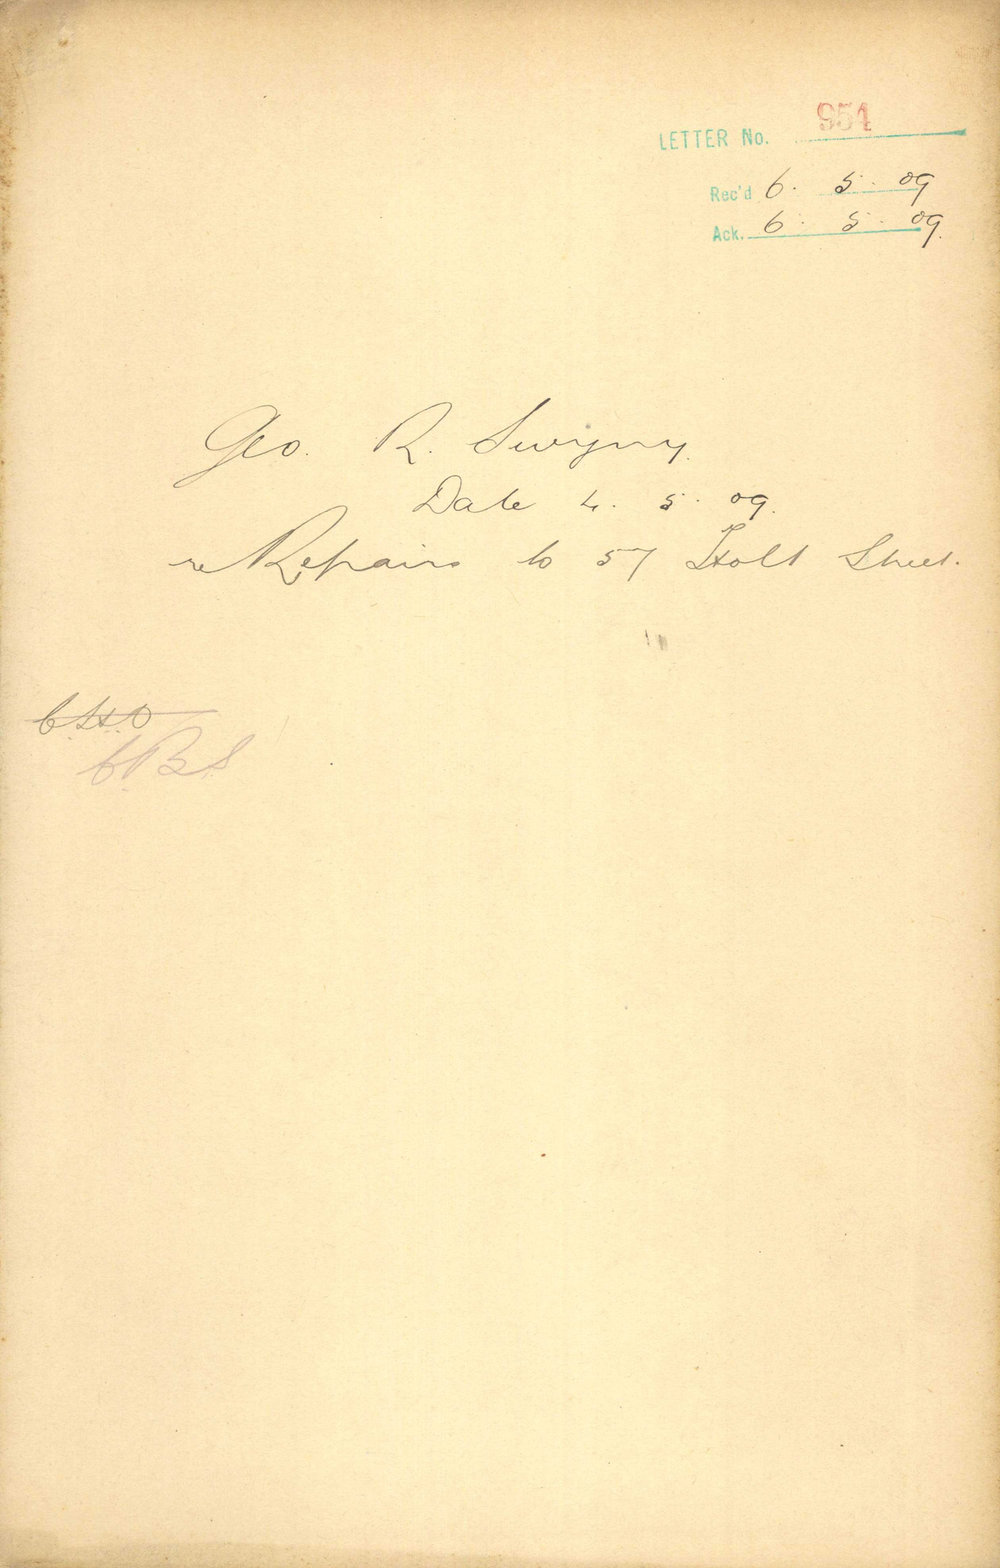 LETTER No. 951
Rec'd 6. 5. 09
Ack. 6. 5. 09.
Geo. R. Swyny.
Date 4. 5. 09.
re Repairs to 57 Holt Street.
C.H.O
C.B.S